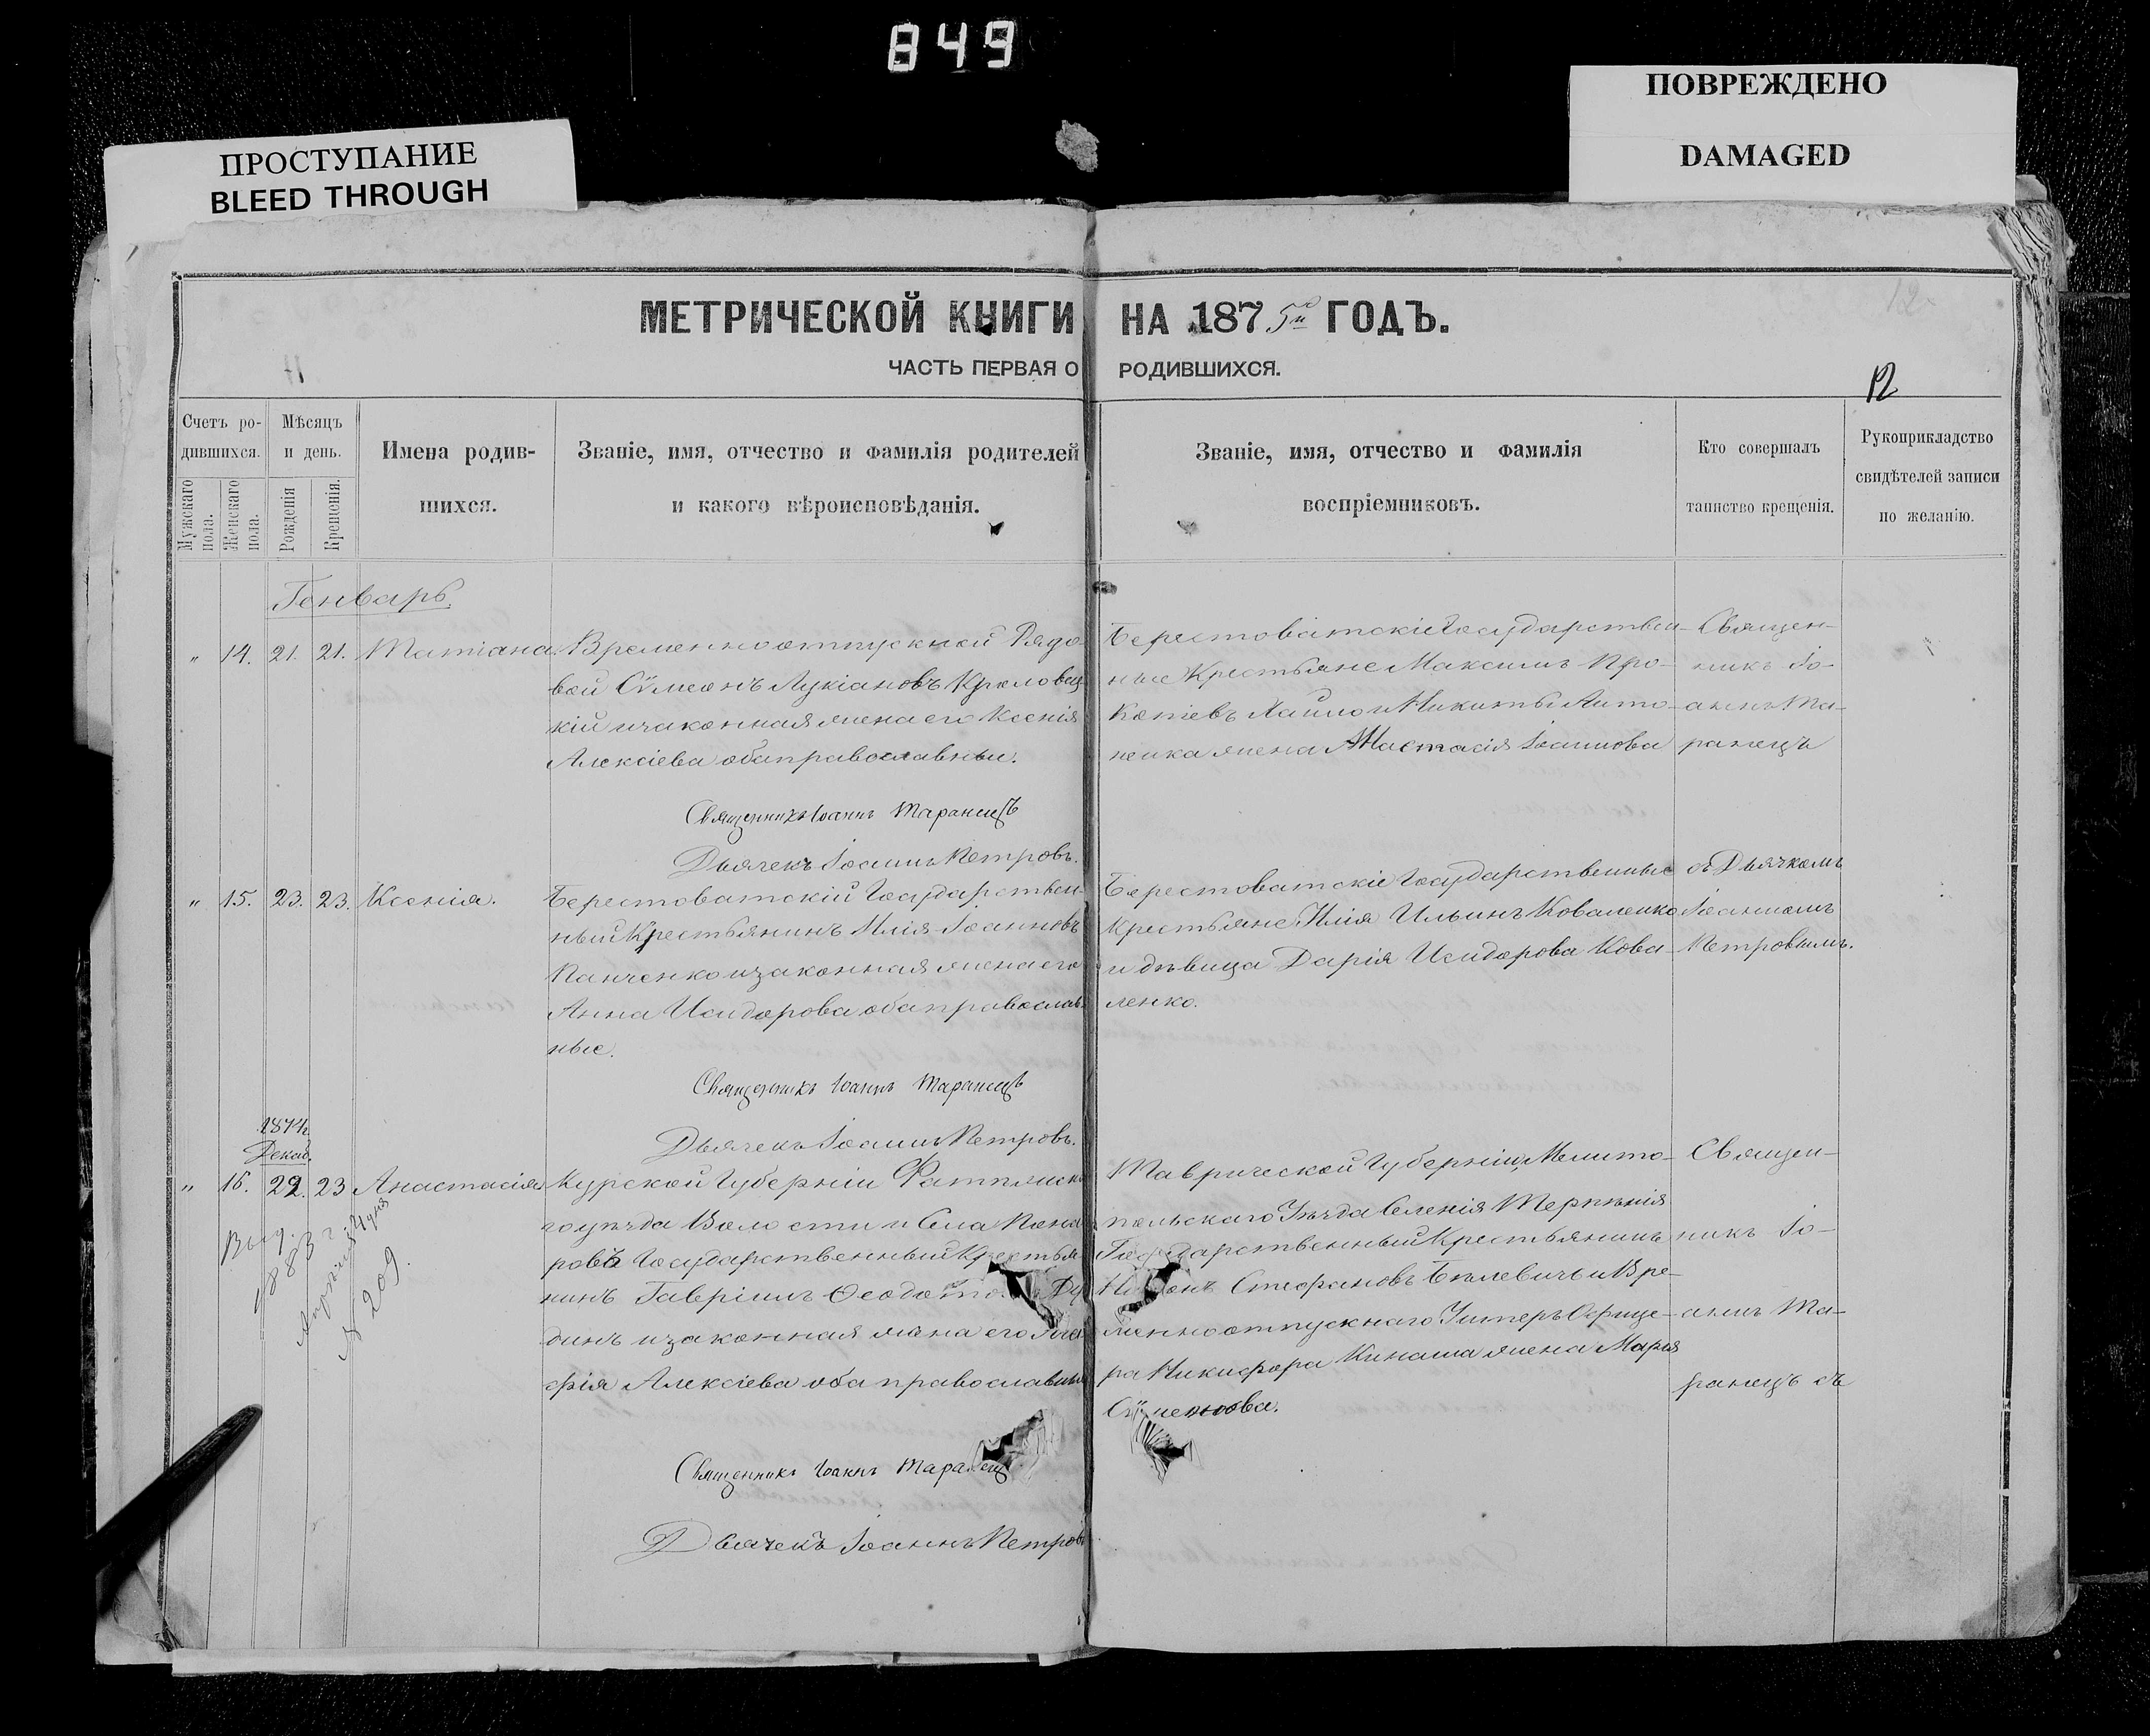 849
ПРОСТУПАНИЕ
BLEED THROUGH
ПОВРЕЖДЕНО
DAMAGED
МЕТРИЧЕСКОЙ КНИГИ НА 1875й ГОДЪ.
ЧАСТЬ ПЕРВАЯ О РОДИВШИХСЯ.
12
Счетъ ро-
дившихся.
Мужскаго пола.
Женскаго пола.
Мѣсяцъ
и день.
Рожденія
Крещенія.
Имена родив-
шихся.
Званіе, имя, отчество и фамилія родителей
и какого вѣроисповѣданія.
Званіе, имя, отчество и фамилія
воспріемниковъ.
Кто совершалъ
таинство крещенія.
Рукоприкладство
свидѣтелей записи
по желанію.
Генварь
" 14. 21. 21. Татіана.
Временноотпускной Рядо-
вой Сѵмеонъ Лукіановъ Кролевец-
кій и законная жена его Ксенія
Алексіева оба православныи.
Священникъ Іоаннъ Таранецъ
Дьячекъ Іоаннъ Петровъ.
Берестоватскіе Государствен-
ные Крестьяне Максимъ Про-
копіевъ и Никиты Лито-
ненка жена Анастасія Іоаннова
Священ-
никъ Іо-
аннъ Та-
ранецъ
" 15. 23. 23. Ксенія.
Берестоватскій Государствен-
ный Крестьянинъ Илія Іоанновъ
Панченко и законная жена его
Анна Исидорова оба православ-
ные.
Священникъ Іоаннъ Таранецъ
Дьячекъ Іоаннъ Петровъ.
Берестоватскіе Государственные
Крестьяне Илія Ильинъ Коваленко
и дѣвица Дарія Исидорова Кова-
ленко.
съ Дьячкомъ
Іоанномъ
Петровымъ.
1874г.
Декаб.
" 16. 22. 23 Анастасія
Выд.
1883 г.
№ 209.
Курской Губерніи Фатижска
го уѣзда Волости и Села
Государственный Крестья
нинъ Гавріилъ
динъ и законная жена его Ага
фія Алексіева оба православны
Священникъ Іоаннъ Таранец
Дьячекъ Іоаннъ Петровъ
Таврической Губерніи, Мелито-
польскаго Уѣзда Селенія Терпѣнія
Государственный Крестьянинъ
Стефановъ Бѣлевичъ и Вре-
менноотпускнаго Унтеръ Офице-
ра Никифора Кинаша жена Марія
Священ-
никъ Іо-
аннъ Та-
ранецъ съ